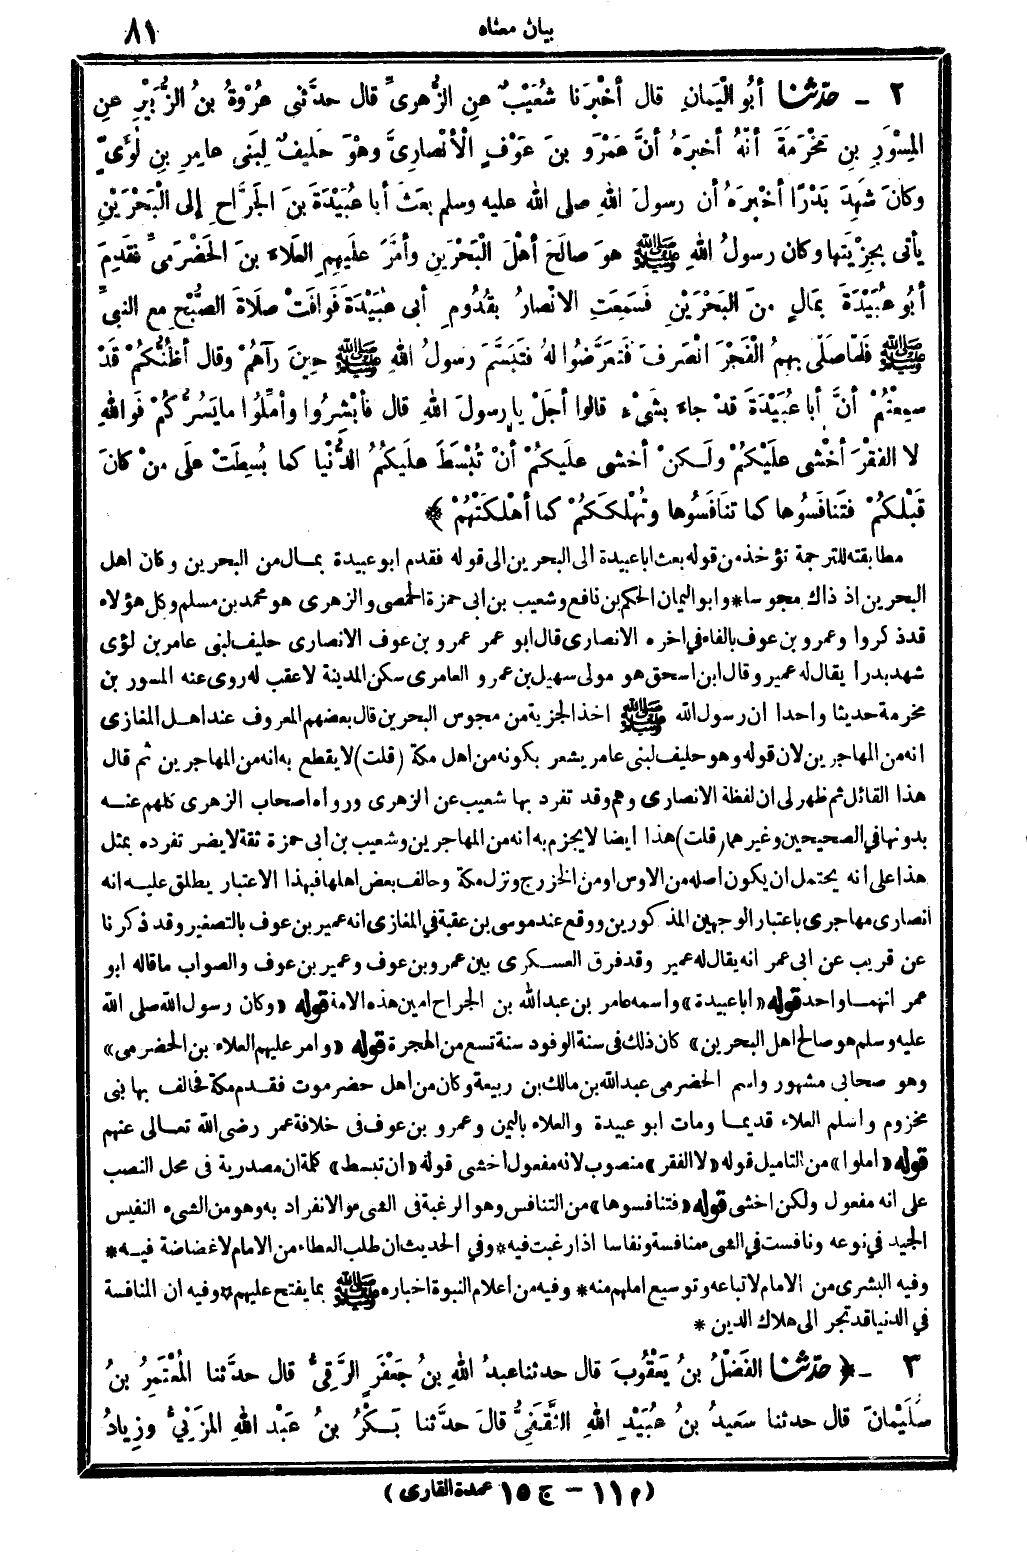 بيان معناه ٨١
٢ ـ حدّثنا أبُو الْيَمانِ قال أخْبرَنا شُعَيْبٌ عنِ الزُّهرىِّ قال حدثَّنى عُرْوَةُ بنُ الزُّبَيْرِ عنِ
المِسْوَرِ بنِ مَخْرَمَةَ أنّهُ أخبرَهُ أنَّ عَمْرَو بنَ عَوْفٍ الْأنْصارِىَّ وهْوَ حَليفٌ لِبَنى عامِرِ بنِ لُؤَىٍّ
وكانَ شَهِدَ بَدْرًا أخْبرَهُ أن رسولَ اللهِ صلى الله عليه وسلم بعَثَ أبا عُبَيْدَةَ بنَ الجَرَّاحِ إلى الْبَحْرَيْنِ
يأتى بجِزْيَتها وكان رسولُ اللهِ ﷺ هوَ صالَحَ أهْلَ الْبَحْرَيْنِ وأمَّرَ علَيهِمِ العلَاءَ بنَ الحَضْرَمىِّ فقَدِمَ
أبُو عُبَيْدَةَ بمَالٍ منَ البَحْرَيْنِ فَسَمِعَتِ الانْصارُ بقُدُومِ أبى عُبَيْدَةَ فَوافَتْ صلَاةَ الصُّبْحِ مع النبىِّ
ﷺ فلَمّا صَلّى بهِمُ الْفَجْرَ انْصَرفَ فتَعرَّضُوا لهُ فتَبَسَّمَ رسولُ اللهِ ﷺ حِينَ رآهُمْ وقال أظُنُّكُمْ قدْ
سمِعْتُمْ أنَّ أبا عُبَيْدَةَ قدْ جاءَ بشَىْءٍ قالوا أجَلْ يا رسولَ اللهِ قال فأبْشِرُوا وأمِّلُوا ما يَسُرُّكُمْ فَواللهِ
لا الفقْرَ أخْشى علَيْكُمْ ولَـكنْ أخشى علَيكمْ أنْ تُبْسَطَ علَيكمُ الدُّنْيا كما بُسِطَتْ علَى منْ كانَ
قَبْلَكُمْ فتَنافَسُوها كما تنَافَسُوها وتُهْلكَكمْ كما أهْلكَتْهُمْ ﴾
مطابقته للترجمة تؤخذ من قوله بعث ابا عبيدة الى البحرين الى قوله فقدم ابو عبيدة بمـال من البحرين وكان اهل
البحرين اذ ذاك مجوسا * وابو اليمان الحكم بن نافع وشعيب بن ابى حمزة الحمصى والزهرى هو محمد بن مسلم وكل هؤلاء
قد ذكروا وعمرو بن عوف بالفاء فى اخره الانصارى قال ابو عمر عمرو بن عوف الانصارى حليف لبنى عامر بن لؤى
شهد بدرا يقال له عمير وقال ابن اسحق هو مولى سهيل بن عمرو العامرى سكن المدينة لا عقب له روى عنه المسور بن
مخرمة حديثا واحدا ان رسول الله ﷺ اخذ الجزية من مجوس البحرين قال بعضهم المعروف عند اهـل المغازى
انه من المهاجرين لان قوله وهو حليف لبنى عامر يشعر بكونه من اهل مكة (قلت) لا يقطع به انه من المهاجرين ثم قال
هذا القائل ثم ظهر لى ان لفظة الانصارى وهم وقد تفرد بها شعيب عن الزهرى ورواه اصحاب الزهرى كلهم عنـه
بدونها فى الصحيحين وغيرهما (قلت) هذا ايضا لا يجزم به انه من المهاجرين وشعيب بن ابى حمزة ثقة لا يضر تفرده بمثل
هذا على انه يحتمل ان يكون اصله من الاوس او من الخزرج ونزل مكة وحالف بعض اهلها فبهذا الاعتبار يطلق عليـه انه
انصارى مهاجرى باعتبار الوجهين المذكورين ووقع عند موسى بن عقبة فى المغازى انه عمير بن عوف بالتصغير وقد ذكرنا
عن قريب عن ابى عمر انه يقال له عمير وقد فرق العسـكرى بين عمرو بن عوف وعمير بن عوف والصواب ما قاله ابو
عمر انهمـا واحد قوله «ابا عبيدة» واسمه عامر بن عبد الله بن الجراح امين هذه الامة قوله «وكان رسول الله صلى الله
عليه وسلم هو صالح اهل البحرين» كان ذلك فى سنة الوفود سنة تسع من الهجرة قوله «وامر عليهم العلاء بن الحضرمى»
وهو صحابى مشهور واسم الحضرمى عبد الله بن مالك بن ربيعة وكان من اهل حضرموت فقـدم مكة فحالف بها بنى
مخزوم واسلم العلاء قديمـا ومات ابو عبيدة والعلاء باليمن وعمرو بن عوف فى خلافة عمر رضى الله تعـالى عنهم
قوله «املوا» من التاميل قوله «لا الفقر» منصوب لانه مفعول أخشى قوله «ان تبسط» كلمة ان مصدرية فى محل النصب
على انه مفعول ولكن اخشى قوله «فتنافسوها» من التنافس وهو الرغبة فى الشىء والانفراد به وهو من الشىء النفيس
الجيد فى نوعه ونافست فى الشىء منافسة ونفاسا اذا رغبت فيه * وفي الحديث ان طلب العطاء من الامام لا غضاضة فيـه *
وفيه البشرى من الامام لاتباعه وتوسيع املهم منه * وفيه من اعلام النبوة اخباره ﷺ بما يفتح عليهم * وفيه ان المنافسة
في الدنيا قد تجر الى هلاك الدين *
٣ ـ ﴿ حدّثنا الفَضْلُ بنُ يَعْقُوبَ قال حدثنا عبدُ اللهِ بنُ جَعْفَرٍ الرَّقِىُّ قال حدَّثنا الْمُعْتَمِرُ بنُ
سُلَيْمانَ قال حدثنا سَعيدُ بنُ عُبَيْدِ اللهِ الثَّقَفِىُّ قالَ حدَّثنا بَـكْرُ بنُ عَبْدِ اللهِ المزَنِىُّ وزِيادُ
(م ١١ – ج ١٥ عمدة القارى)